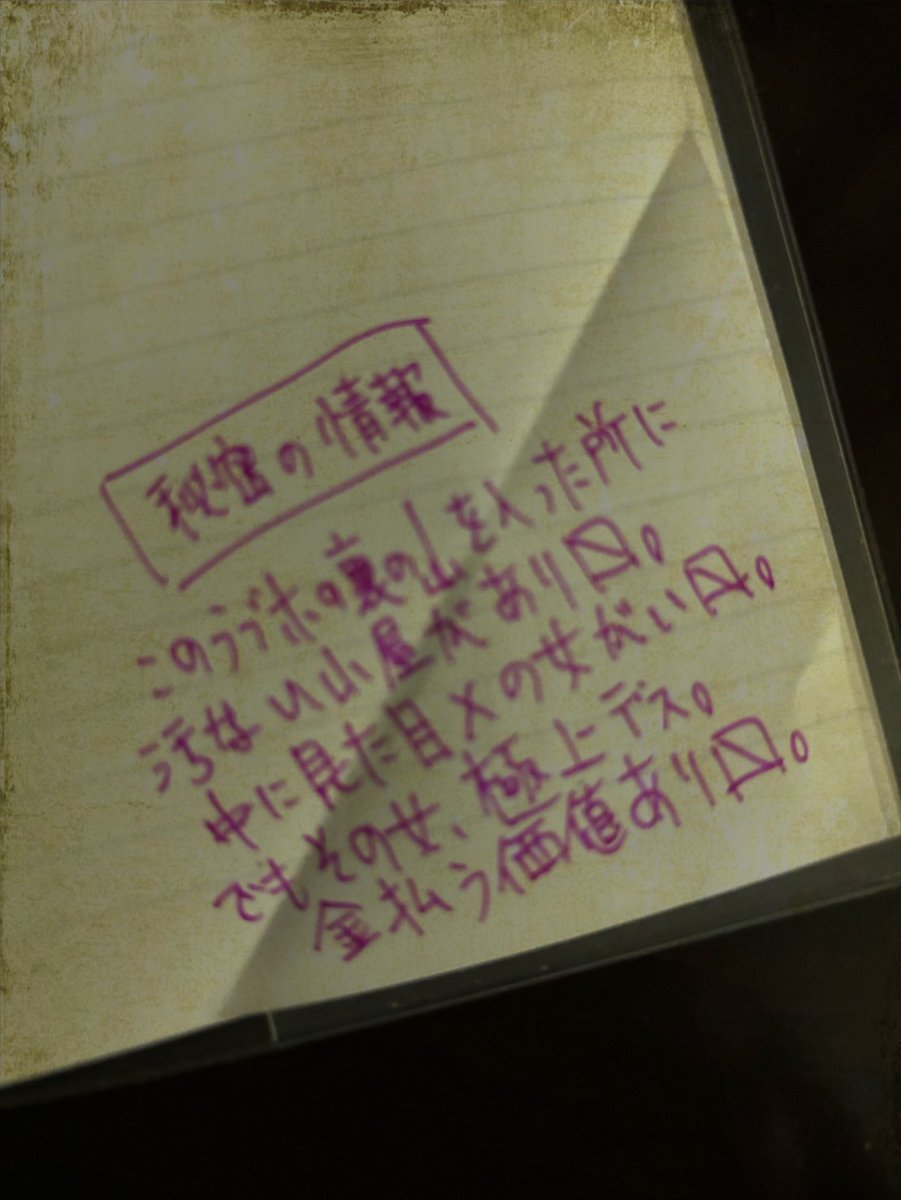 秘密の情報
このラブホの裏の山を入った所に
汚ない小屋があり〼。
中に見た目×の女がい〼。
でもその女、極上デス。
金払う価値あり〼。